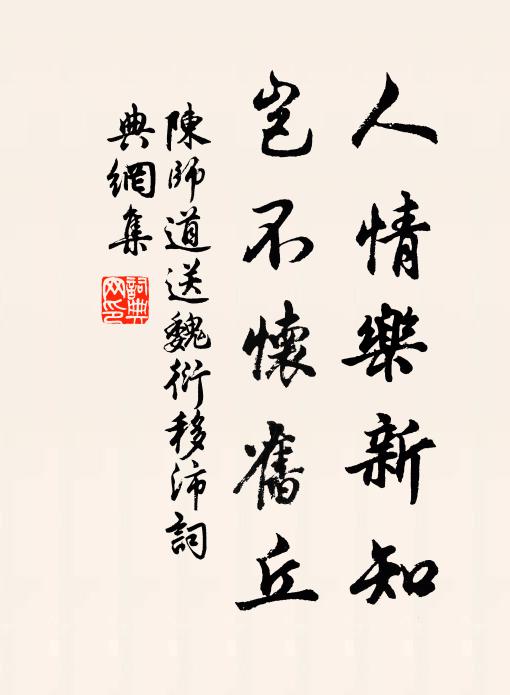 人情樂新知
豈不懷舊丘
陳師道送魏衍移沛詞
典網集
詞典
网印